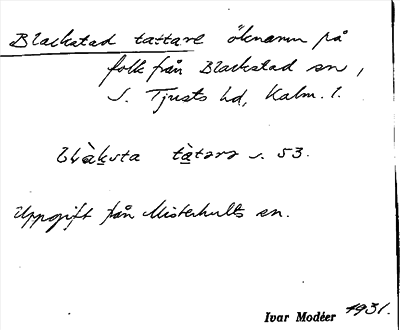 Blackstad tattare öknamn på
folk från Blackstad sn,
S. Tjusts hd, Kalm. l.
tàtarə s. 53.
Uppgift från Misterhults sn.
Ivar Modéer 1931.